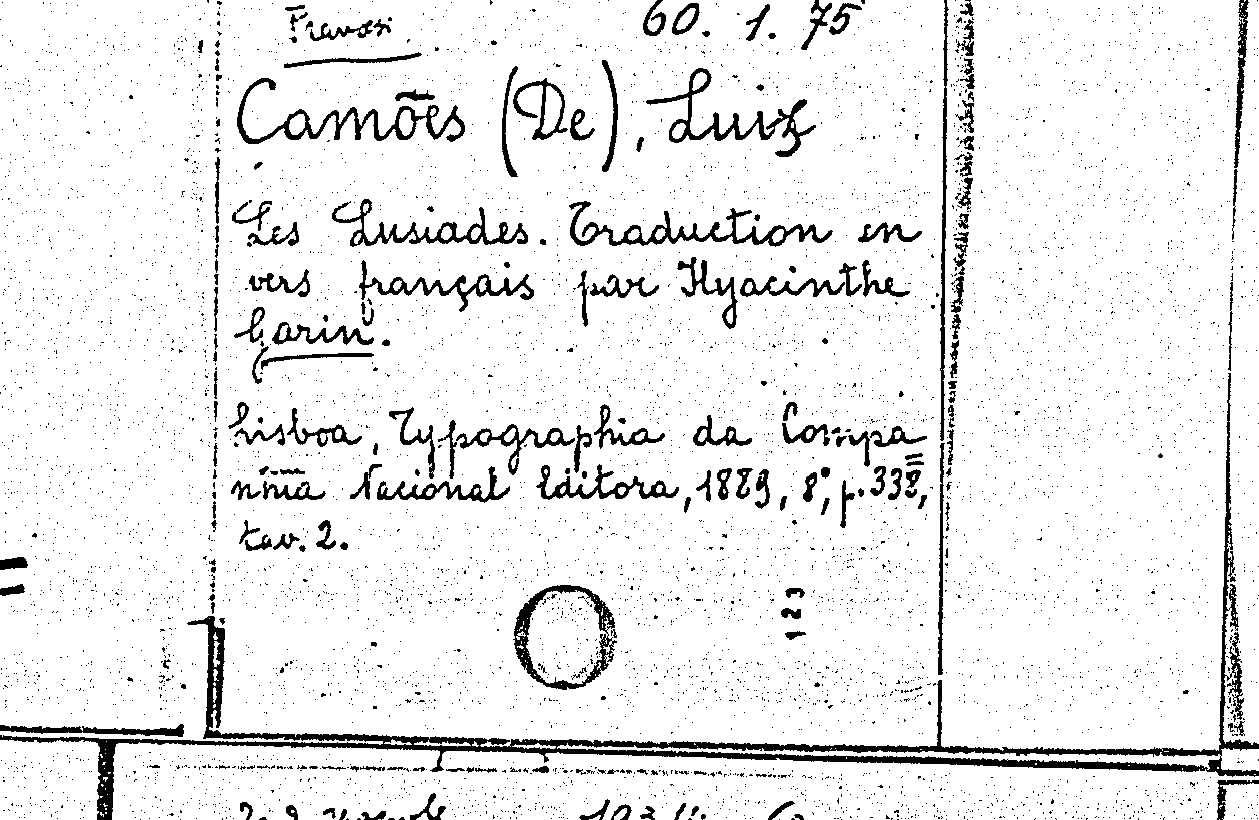 60. 1. 75
Camões (De), Luiz
Les Lusiades. Traduction en
vers français par Hyacinthe
Garin.
Lisboa, Typographia da Compa
nhia Nacional Editora, 1889, 8°, p. 338,
tav. 2.
123